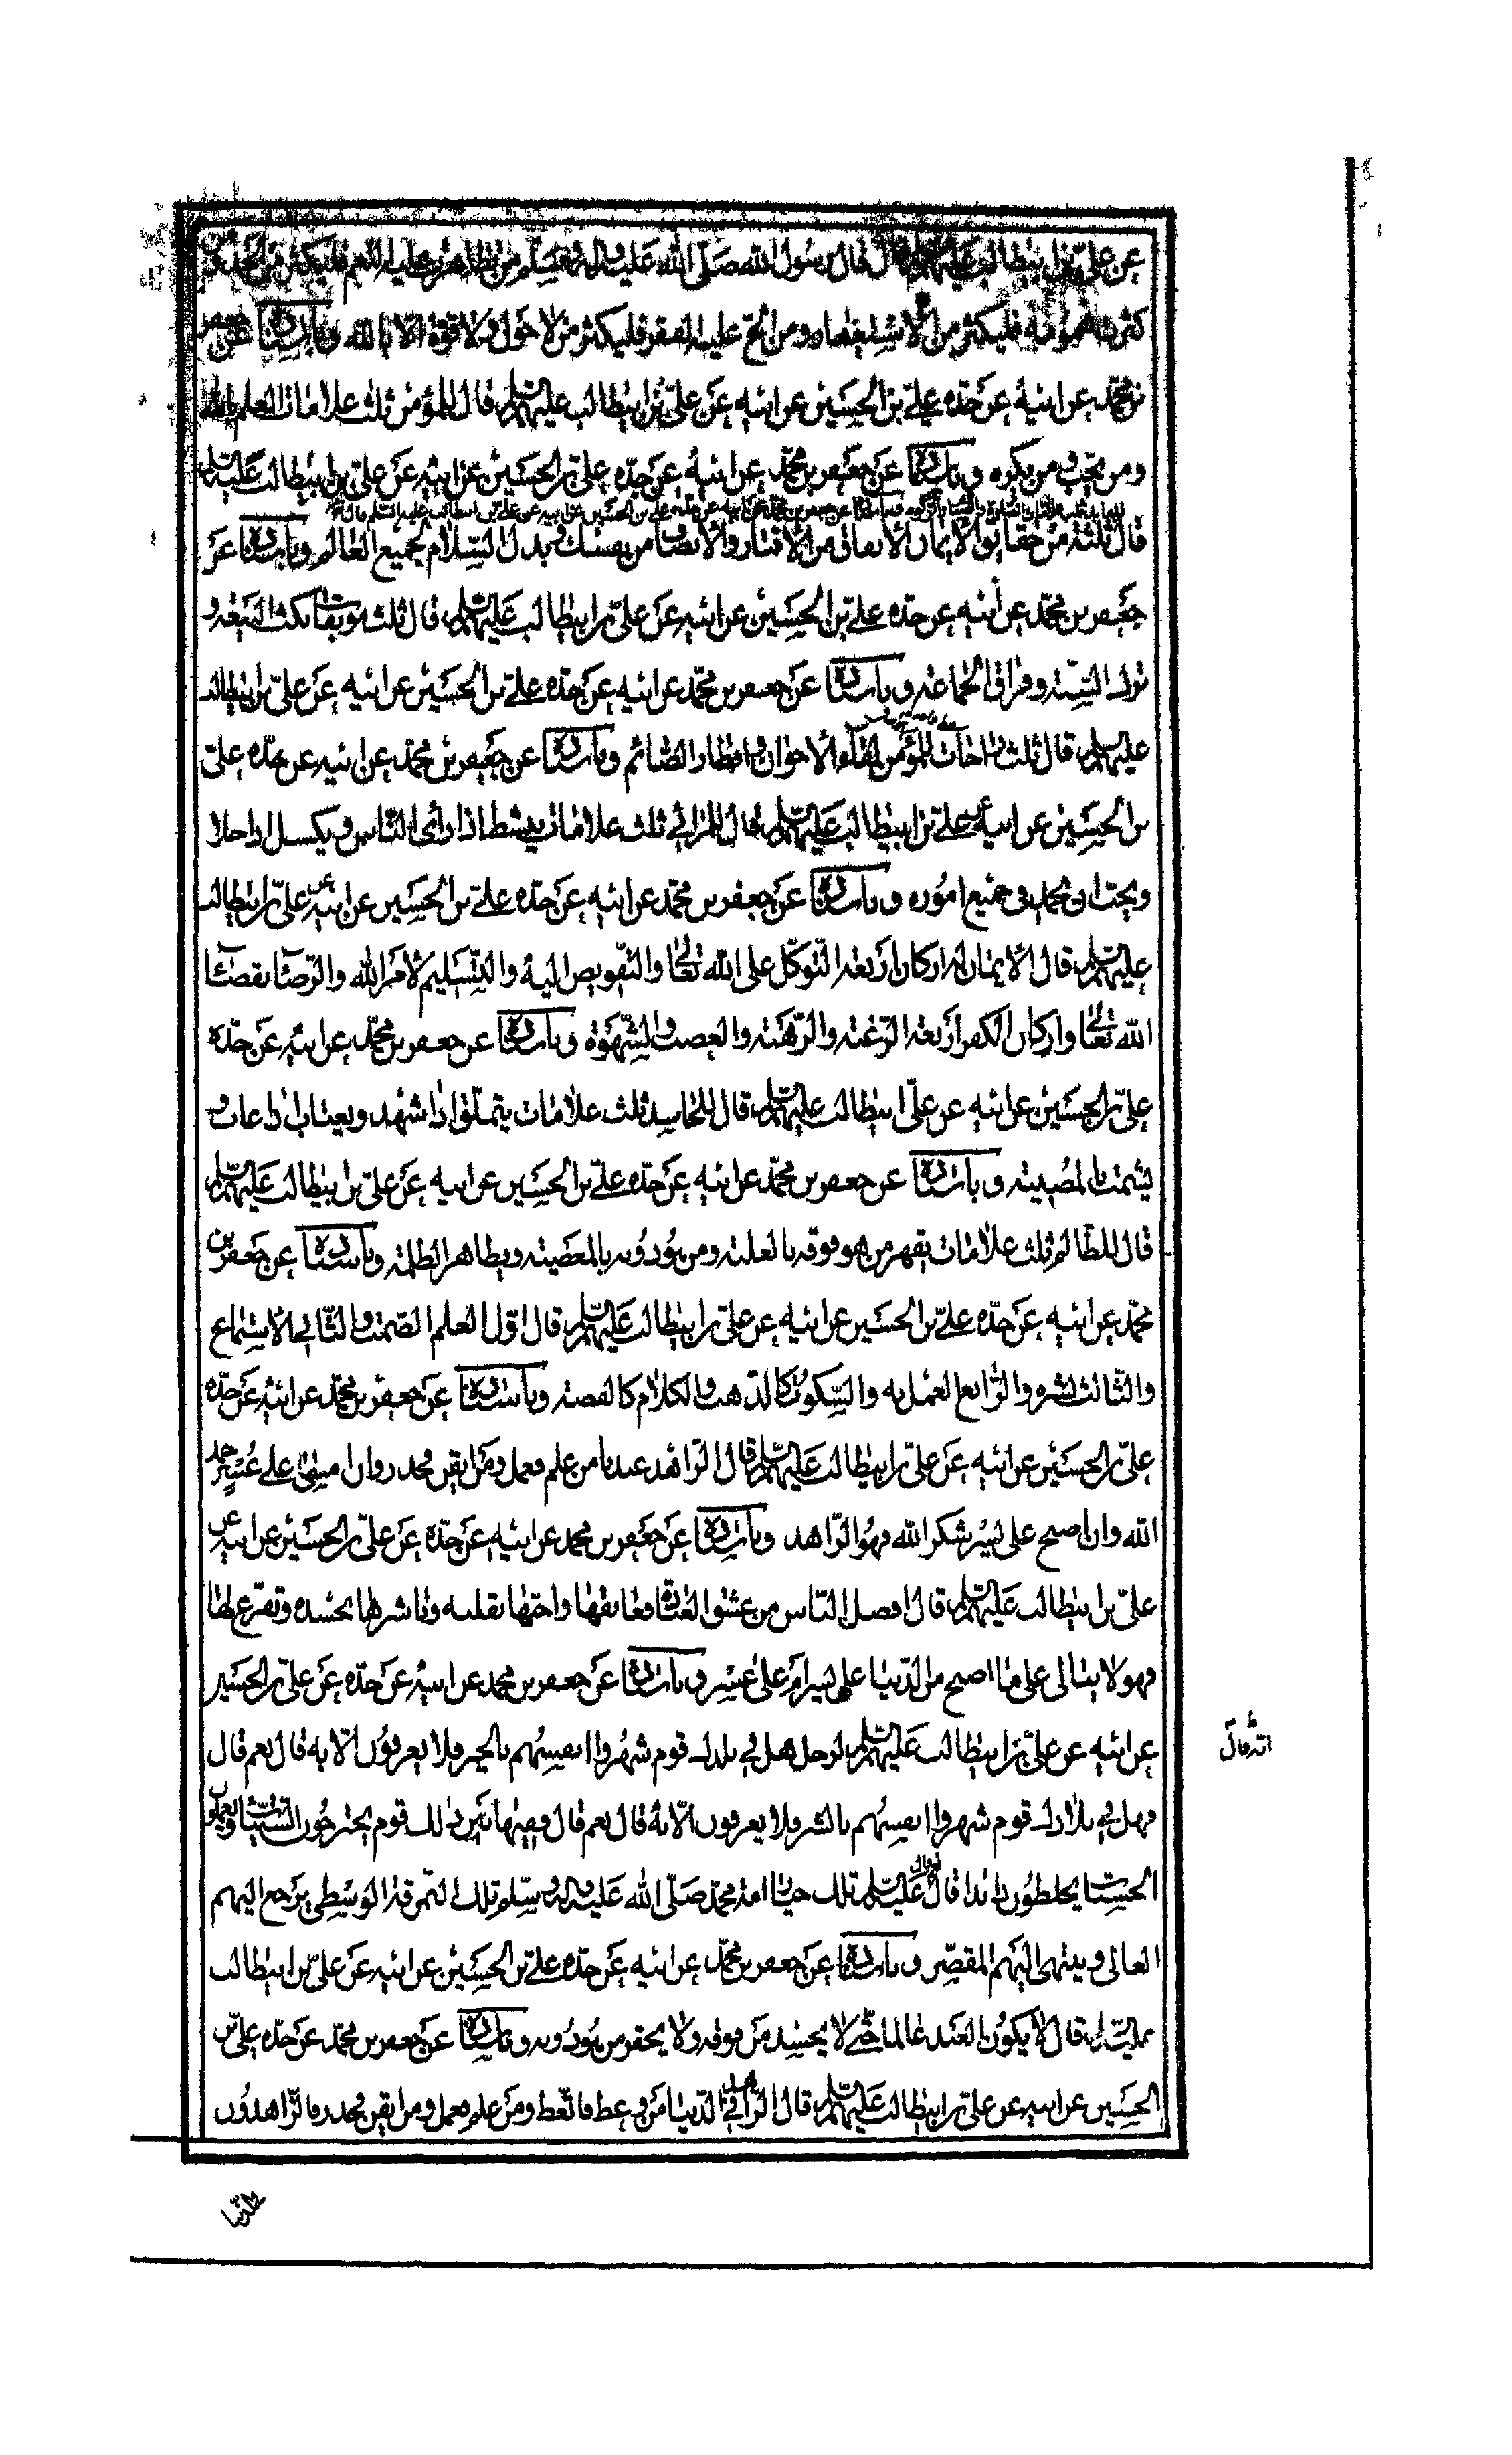 عن علي بن ابيطالب عليهم السلام قال قال رسول الله صلى الله عليه واله وسلم من تظاهرت عليه النعم فليكثر من الحمد ومن
كثرت همومه فليكثر من الاستغفار ومن الح عليه الفقر فليكثر من لا حول ولا قوة الا بالله وباسناده عن جعفر
بن محمد عن ابيه عن جده علي بن الحسين عن ابيه عن علي بن ابيطالب عليهم السلام قال للمؤمن ثلث علامات العلم بالله
ومن يحب ومن يكره وباسناده عن جعفر بن محمد عن ابيه عن جده علي بن الحسين عن ابيه عن علي بن ابيطالب عليه السلام
عن جعفر بن محمد عن ابيه عن جده علي بن الحسين عن ابيه عن علي بن ابيطالب عليه السلام قال
قال ثلثة من حقايق الايمان الانفاق من الاقتار والانصاف من نفسك وبذل السلام لجميع العالم وباسناده عن
جعفر بن محمد عن ابيه عن جده علي بن الحسين عن ابيه عن علي بن ابيطالب عليهم السلام قال ثلث موبقات نكث البيعة و
ترك السنة وفراق الجماعة وباسناده عن جعفر بن محمد عن ابيه عن جده علي بن الحسين عن ابيه عن علي بن ابيطالب
عليهم السلام قال ثلث راحات للمؤمن لقاء الاخوان وافطار الصائم وباسناده عن جعفر بن محمد عن ابيه عن جده علي
بن الحسين عن ابيه عن علي بن ابيطالب عليهم السلام قال للمرائي ثلث علامات ينشط اذا راى الناس ويكسل اذا خلا
ويحب ان يحمد في جميع اموره وباسناده عن جعفر بن محمد عن ابيه عن جده علي بن الحسين عن ابيه عن علي بن ابيطالب
عليهم السلام قال الايمان له اركان اربعة التوكل على الله تعالى والتفويض اليه والتسليم لامر الله والرضا بقضاء
الله تعالى واركان الكفر اربعة الرغبة والرهبة والغضب والشهوة وباسناده عن جعفر بن محمد عن ابيه عن جده
علي بن الحسين عن ابيه عن علي ابيطالب عليهم السلام قال للحاسد ثلث علامات يتملق اذا شهد ويغتاب اذا غاب و
يشمت بالمصيبة وباسناده عن جعفر بن محمد عن ابيه عن جده علي بن الحسين عن ابيه عن علي بن ابيطالب عليهم السلام
قال للظالم ثلث علامات يقهر من هو فوقه بالغلبة ومن هو دونه بالمعصية ويظاهر الظلمة وباسناده عن جعفر بن
محمد عن ابيه عن جده علي بن الحسين عن ابيه عن علي بن ابيطالب عليهم السلام قال اول العلم الصمت والثاني الاستماع
والثالث نشره والرابع العمل به والسكوت كالذهب والكلام كالفضة وباسناده عن جعفر بن محمد عن ابيه عن جده
علي بن الحسين عن ابيه عن علي بن ابيطالب عليهم السلام قال الزاهد عندنا من علم فعمل ومن ايقن فحذر وان امسى على عسر حمد
الله وان اصبح على يسر شكر الله فهو الزاهد وباسناده عن جعفر بن محمد عن ابيه عن جده عن علي بن الحسين عن ابيه عن
علي بن ابيطالب عليهم السلام قال افضل الناس من عشق العبادة فعانقها واحبها بقلبه وباشرها بجسده وتفرغ لها
فهو لا يبالي على ما اصبح من الدنيا على يسر ام على عسر وباسناده عن جعفر بن محمد عن ابيه عن جده عن علي بن الحسين
عن ابيه عن علي بن ابيطالب عليهم السلام لرجل هل في بلدك قوم شهروا انفسهم بالخير فلا يعرفون الا به قال نعم قال
انه قال
فهل في بلادك قوم شهروا انفسهم بالشر فلا يعرفون الا به قال نعم قال ففيها بين ذلك قوم يجترحون السيئات ويعملون
الحسنات يخلطون ذا بذا قال نعم قال عليه السلام تلك خيار امة محمد صلى الله عليه واله وسلم تلك النمرقة الوسطى يرجع اليهم
الغالي وينتهي اليهم المقصر وباسناده عن جعفر بن محمد عن ابيه عن جده علي بن الحسين عن ابيه عن علي بن ابيطالب
عليه السلام قال لا يكون العبد عالما حتى لا يحسد من فوقه ولا يحقر من هو دونه وباسناده عن جعفر بن محمد عن جده علي بن
الحسين عن ابيه عن علي بن ابيطالب عليهم السلام قال الزاهد في الدنيا من وعظ فاتعظ ومن علم فعمل ومن ايقن فحذر فالزاهدون